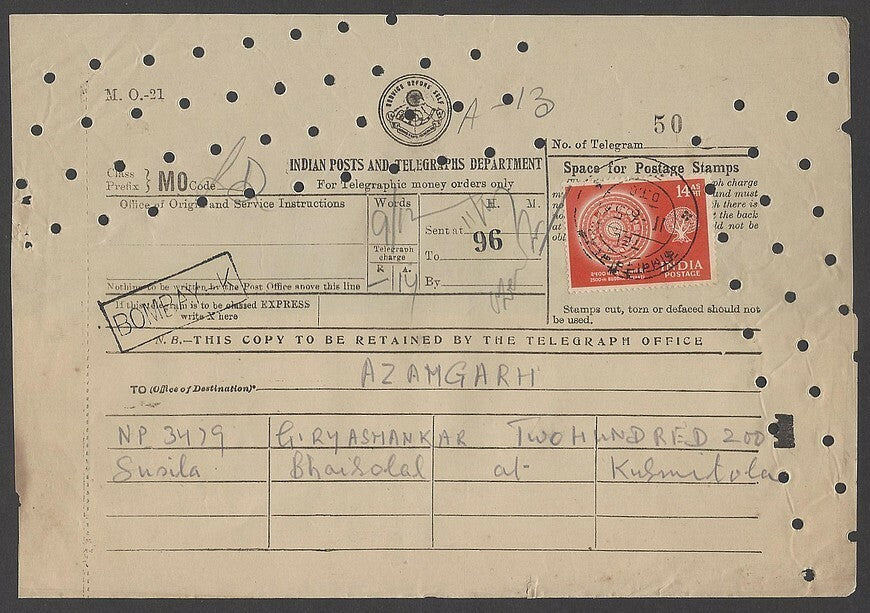 M. O.-21
SERVICE BEFORE SELF
A-13
50
No. of Telegram
INDIAN POSTS AND TELEGRAPHS DEPARTMENT
For Telegraphic money orders only
Class
Prefix } MO Code
Office of Origin and Service Instructions
Words
9/12
Telegraph
charge
R. A.
-/14
H. M.
Sent at
96
To
By
Space for Postage Stamps
14 AS
INDIA
POSTAGE
ph charge
and must
h there is
at the back
ld not be
Stamps cut, torn or defaced should not
be used.
Nothing to be written by the Post Office above this line
If this telegram is to be classed EXPRESS
write X here
BOMBAY
N. B.—THIS COPY TO BE RETAINED BY THE TELEGRAPH OFFICE
TO (Office of Destination)
AZAMGARH
NP 3479 GIRYASHANKAR TWO HUNDRED 200
Susila Bhaisalal at Kurmitola